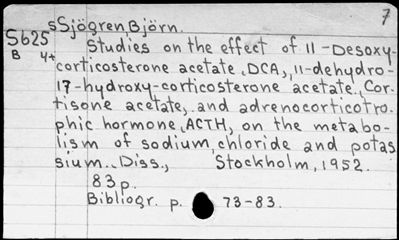 7
sSjögren, Björn.
S625 Studies on the effect of 11-Desoxy-
B 4+ corticosterone acetate, DCA, 11-dehydro-
17-hydroxy-corticosterone acetate, Cor-
tisone acetate, and adrenocorticotro-
phic hormone, ACTH, on the metabo-
lism of sodium, chloride and potas
sium.. Diss., Stockholm, 1952.
83 p.
Bibliogr. p. 73-83.